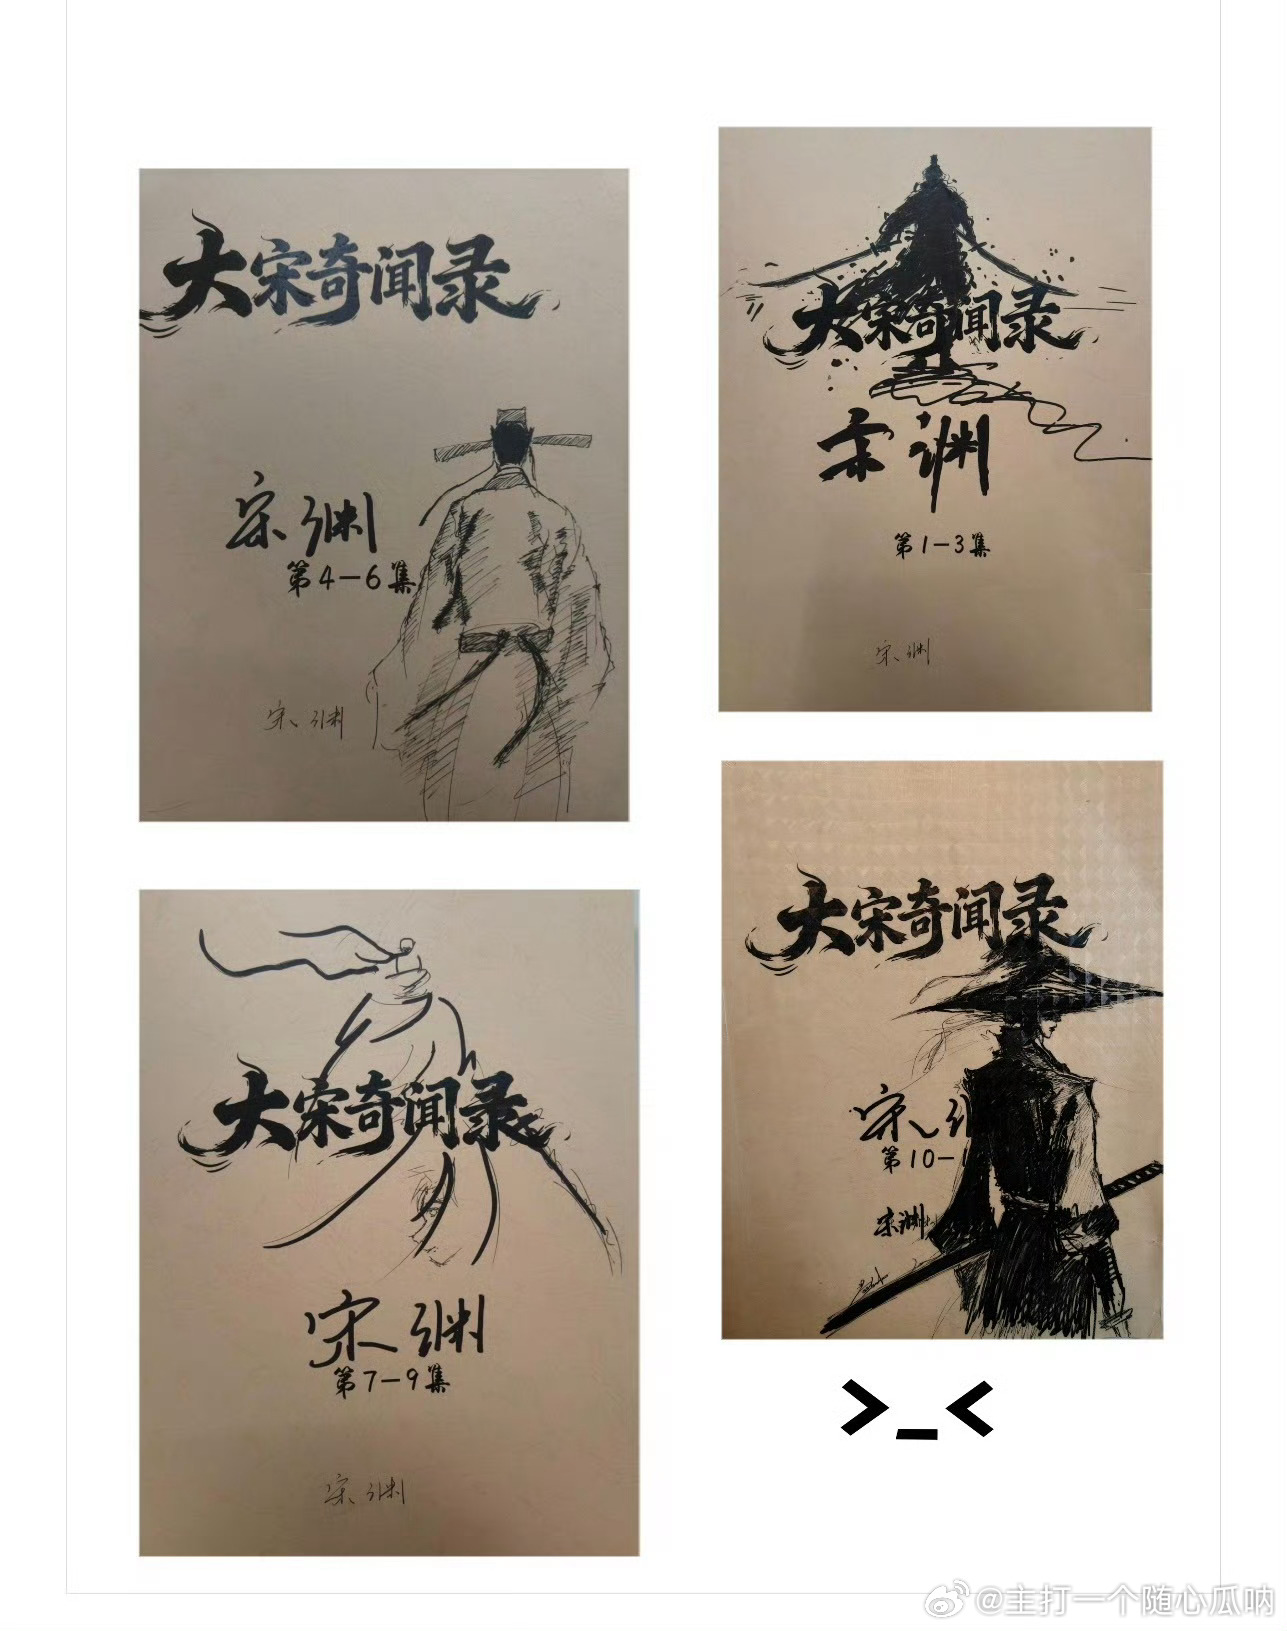 大宋奇闻录
宋渊
第4-6集
宋渊
大宋奇闻录
宋渊
第1-3集
宋渊
大宋奇闻录
宋渊
第7-9集
宋渊
大宋奇闻录
宋
第10-
宋渊
>_<
@主打一个随心瓜呐